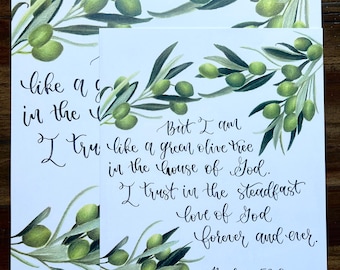 But I am
like a green olive tree
in the house of God.
I trust in the steadfast
love of God
forever and ever.
like a g
in the
I tru